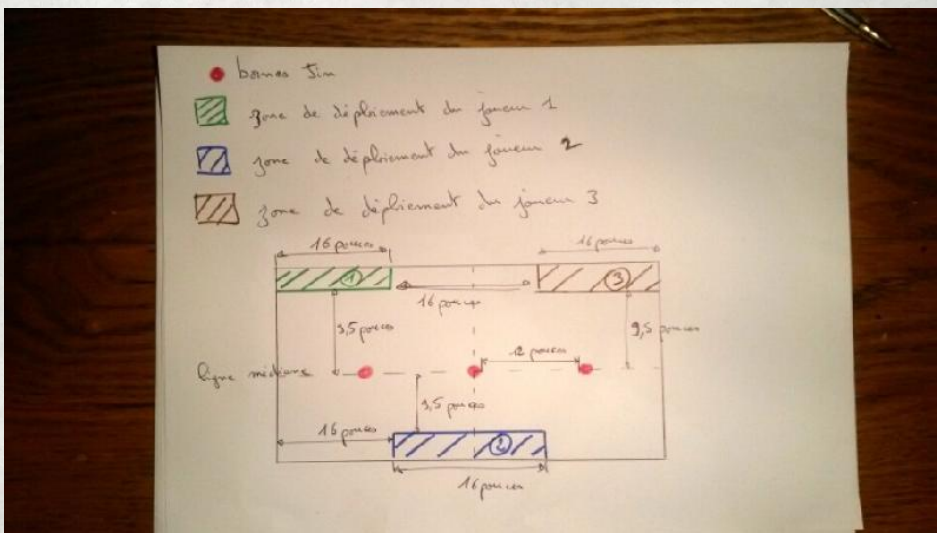 bornes Jin
zone de déploiement du joueur 1
zone de déploiement du joueur 2
zone de déploiement du joueur 3
16 pouces
16 pouces
1
3
16 pouces
9,5 pouces
9,5 pouces
12 pouces
ligne médiane
9,5 pouces
16 pouces
2
16 pouces